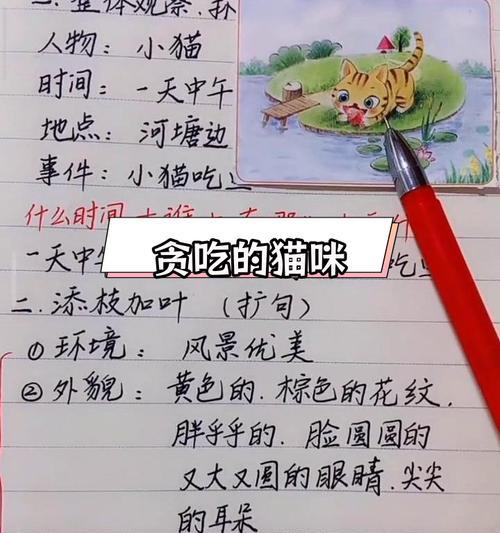 一. 整体观察.
人物: 小猫
时间: 一天中午
地点: 河塘边
事件: 小猫吃
什么时间
一天中午
贪吃的猫咪
二. 添枝加叶 （扩句）
① 环境: 风景优美
② 外貌: 黄色的. 棕色的花纹.
胖乎乎的. 脸圆圆的
又大又圆的眼睛. 尖尖
的耳朵